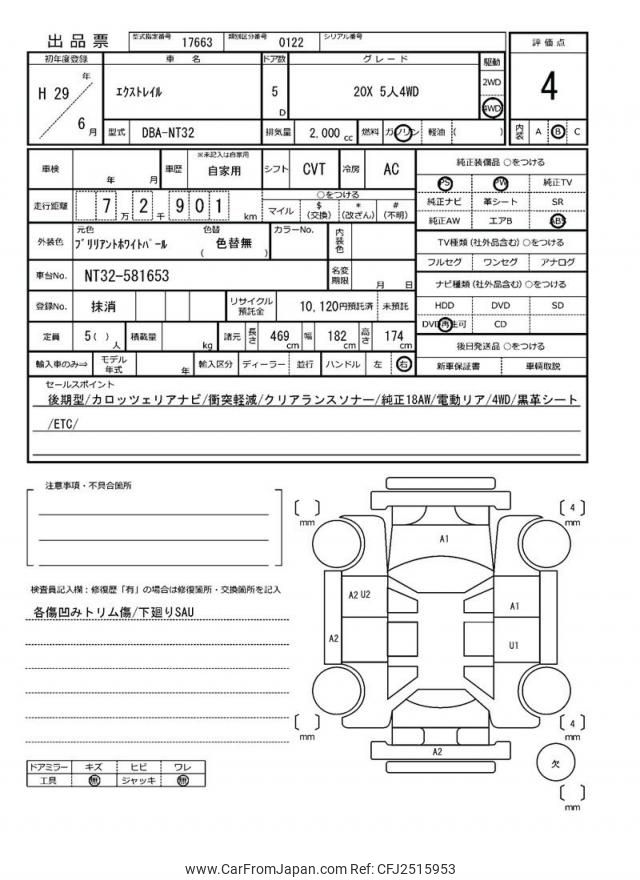 出品票 型式指定番号 17663 類別区分番号 0122 シリアル番号
評価点
4
初年度登録 車名 ドア数 グレード 駆動
H 29 年 6 月 エクストレイル 5 D 20X 5人4WD 2WD 4WD
型式 DBA-NT32 排気量 2,000 cc 燃料 ガソリン 軽油 ( ) 内装 A B C
車検 年 月 車歴 ※未記入は自家用 自家用 シフト CVT 冷房 AC
走行距離 7 万 2 千 9 0 1 km ○をつける
マイル $ (交換) * (改ざん) # (不明)
外装色 元色 ブリリアントホワイトパール 色替 ( 色替無 ) カラーNo. 内装色
車台No. NT32-581653 名変期限 月 日
登録No. 抹消 リサイクル預託金 10,120円預託済 未預託
定員 5( ) 人 積載量 kg 諸元 長さ 469 cm 幅 182 cm 高さ 174 cm
輸入車のみ⇒ モデル年式 年 輸入区分 ディーラー 並行 ハンドル 左 右
純正装備品 ○をつける
PS PW 純正TV
純正ナビ 革シート SR
純正AW エアB ABS
TV種類(社外品含む) ○をつける
フルセグ ワンセグ アナログ
ナビ種類(社外品含む) ○をつける
HDD DVD SD
DVD再生可 CD
後日発送品 ○をつける
新車保証書 車輌取説
セールスポイント
後期型/カロッツェリアナビ/衝突軽減/クリアランスソナー/純正18AW/電動リア/4WD/黒革シート
/ETC/
注意事項・不具合箇所
検査員記入欄:修復歴「有」の場合は修復箇所・交換箇所を記入
各傷凹みトリム傷/下廻りSAU
ドアミラー キズ ヒビ ワレ
工具 無 ジャッキ 無
[ ] mm
[ 4 ] mm
A1
A2 U2
A1
A2
U1
[ ] mm
[ 4 ] mm
A2
欠
[ ] mm
www.CarFromJapan.com Ref: CFJ2515953